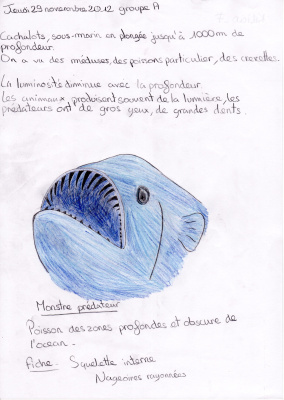 Jeudi 29 novembre 2012 groupe A
Cachalots, sous-marin en plongée jusqu'à 1000 m de
profondeur.
On a vu des méduses, des poisons particulier, des crevettes.
La luminosité diminue avec la profondeur.
Les animaux, produisent souvent de la lumière, les
prédateurs ont de gros yeux, de grandes dents.
Monstre prédateur
Poisson des zones profondes et obscure de
l'ocean.
Fiche: Squelette interne
Nageoires rayonnées